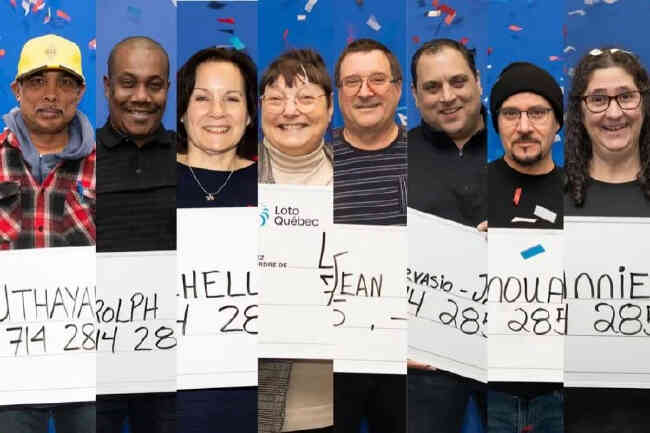 UTHAYA
714 28
ROLPH
14 28
HELL
4 28
Loto
Québec
EZ
ORDRE DE
L
JEAN
5, -
RVASIO-J
14 285
NOUA
285
NNIE
285